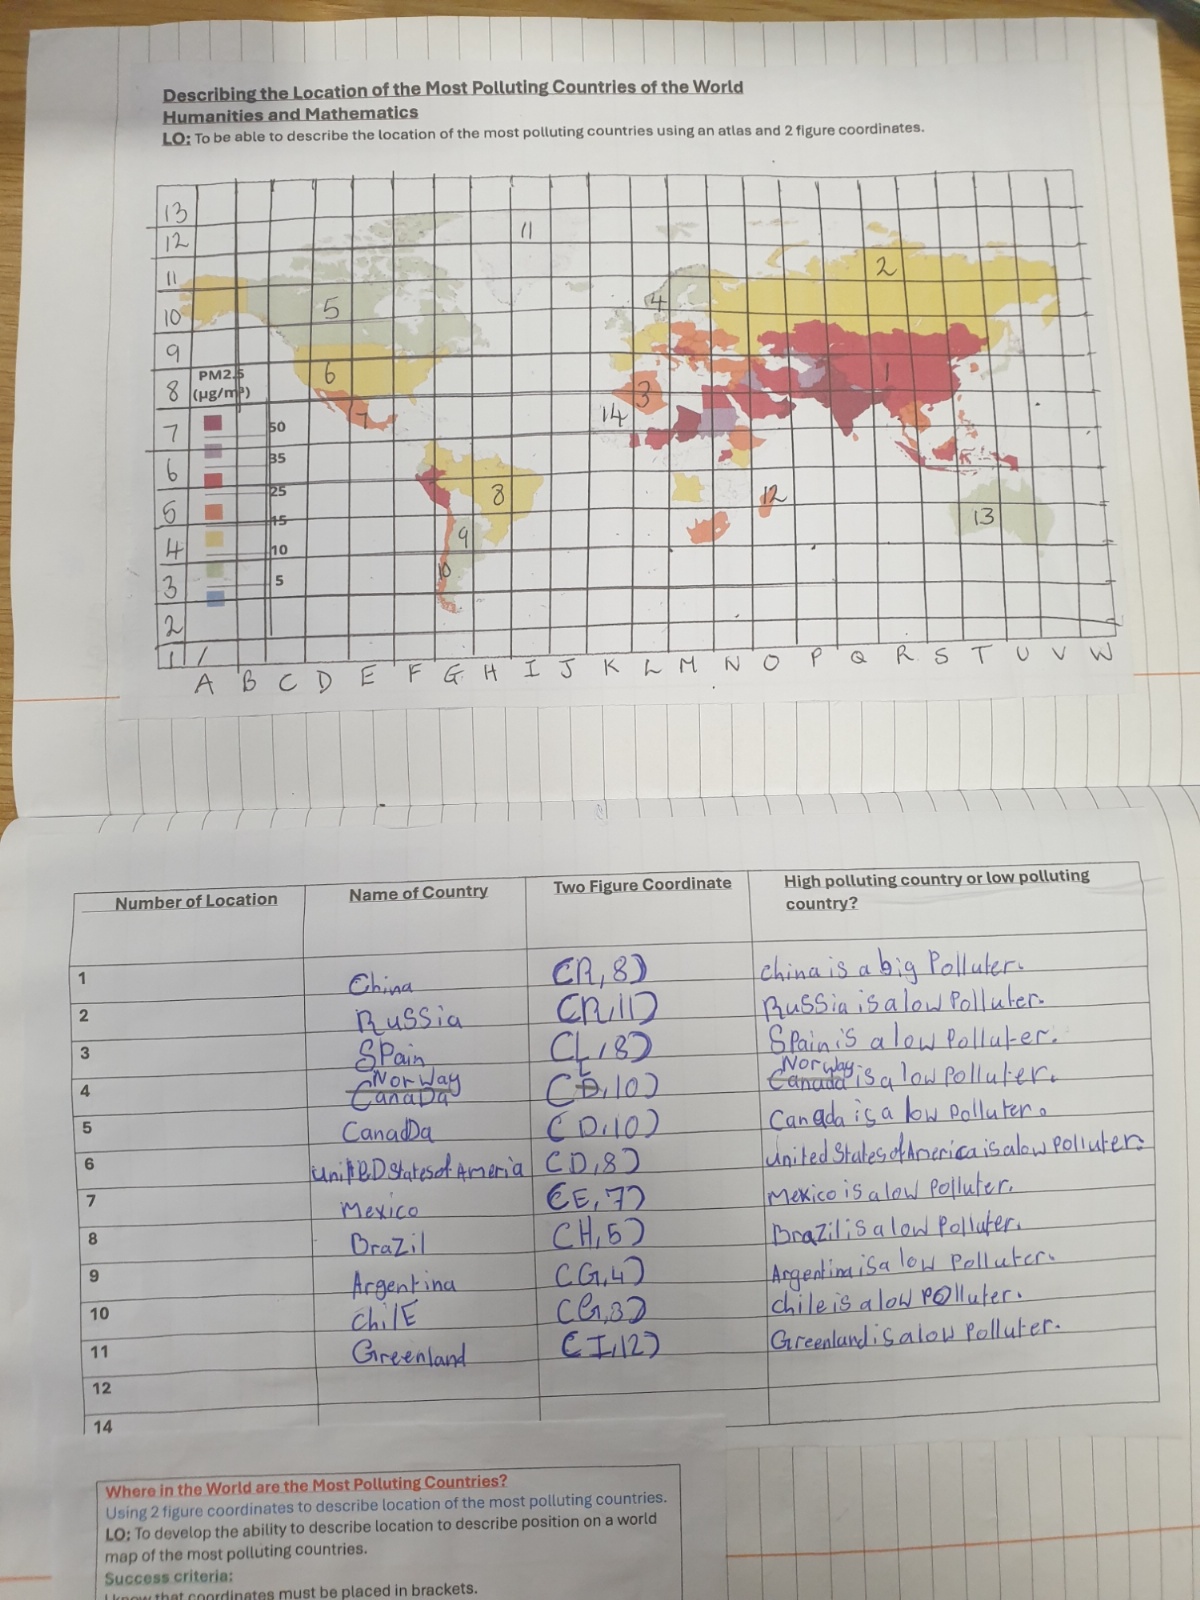 Describing the Location of the Most Polluting Countries of the World
Humanities and Mathematics
LO: To be able to describe the location of the most polluting countries using an atlas and 2 figure coordinates.
13
12
11
10
9
8
7
6
5
4
3
2
1
PM2.5
(µg/m³)
50
35
25
15
10
5
11
2
5
4
6
3
1
7
14
8
12
13
9
10
A B C D E F G H I J K L M N O P Q R S T U V W
Number of Location Name of Country Two Figure Coordinate High polluting country or low polluting country?
1 China (R,8) china is a big Polluter.
2 Russia (R,11) Russia is a low Polluter.
3 Spain (L,8) Spain is a low Polluter.
4 Norway Canada (L,10) Norway Canada is a low Polluter.
5 Canadda (D,10) Canada is a low Polluter.
6 unitED States of Ameria (D,8) united States of America is a low polluter.
7 Mexico (E,7) Mexico is a low Polluter.
8 Brazil (H,5) Brazil is a low Polluter.
9 Argentina (G,4) Argentina is a low Polluter.
10 chilE (G,3) chile is a low Polluter.
11 Greenland (I,12) Greenland is a low Polluter.
12
14
Where in the World are the Most Polluting Countries?
Using 2 figure coordinates to describe location of the most polluting countries.
LO: To develop the ability to describe location to describe position on a world
map of the most polluting countries.
Success criteria:
I know that coordinates must be placed in brackets.